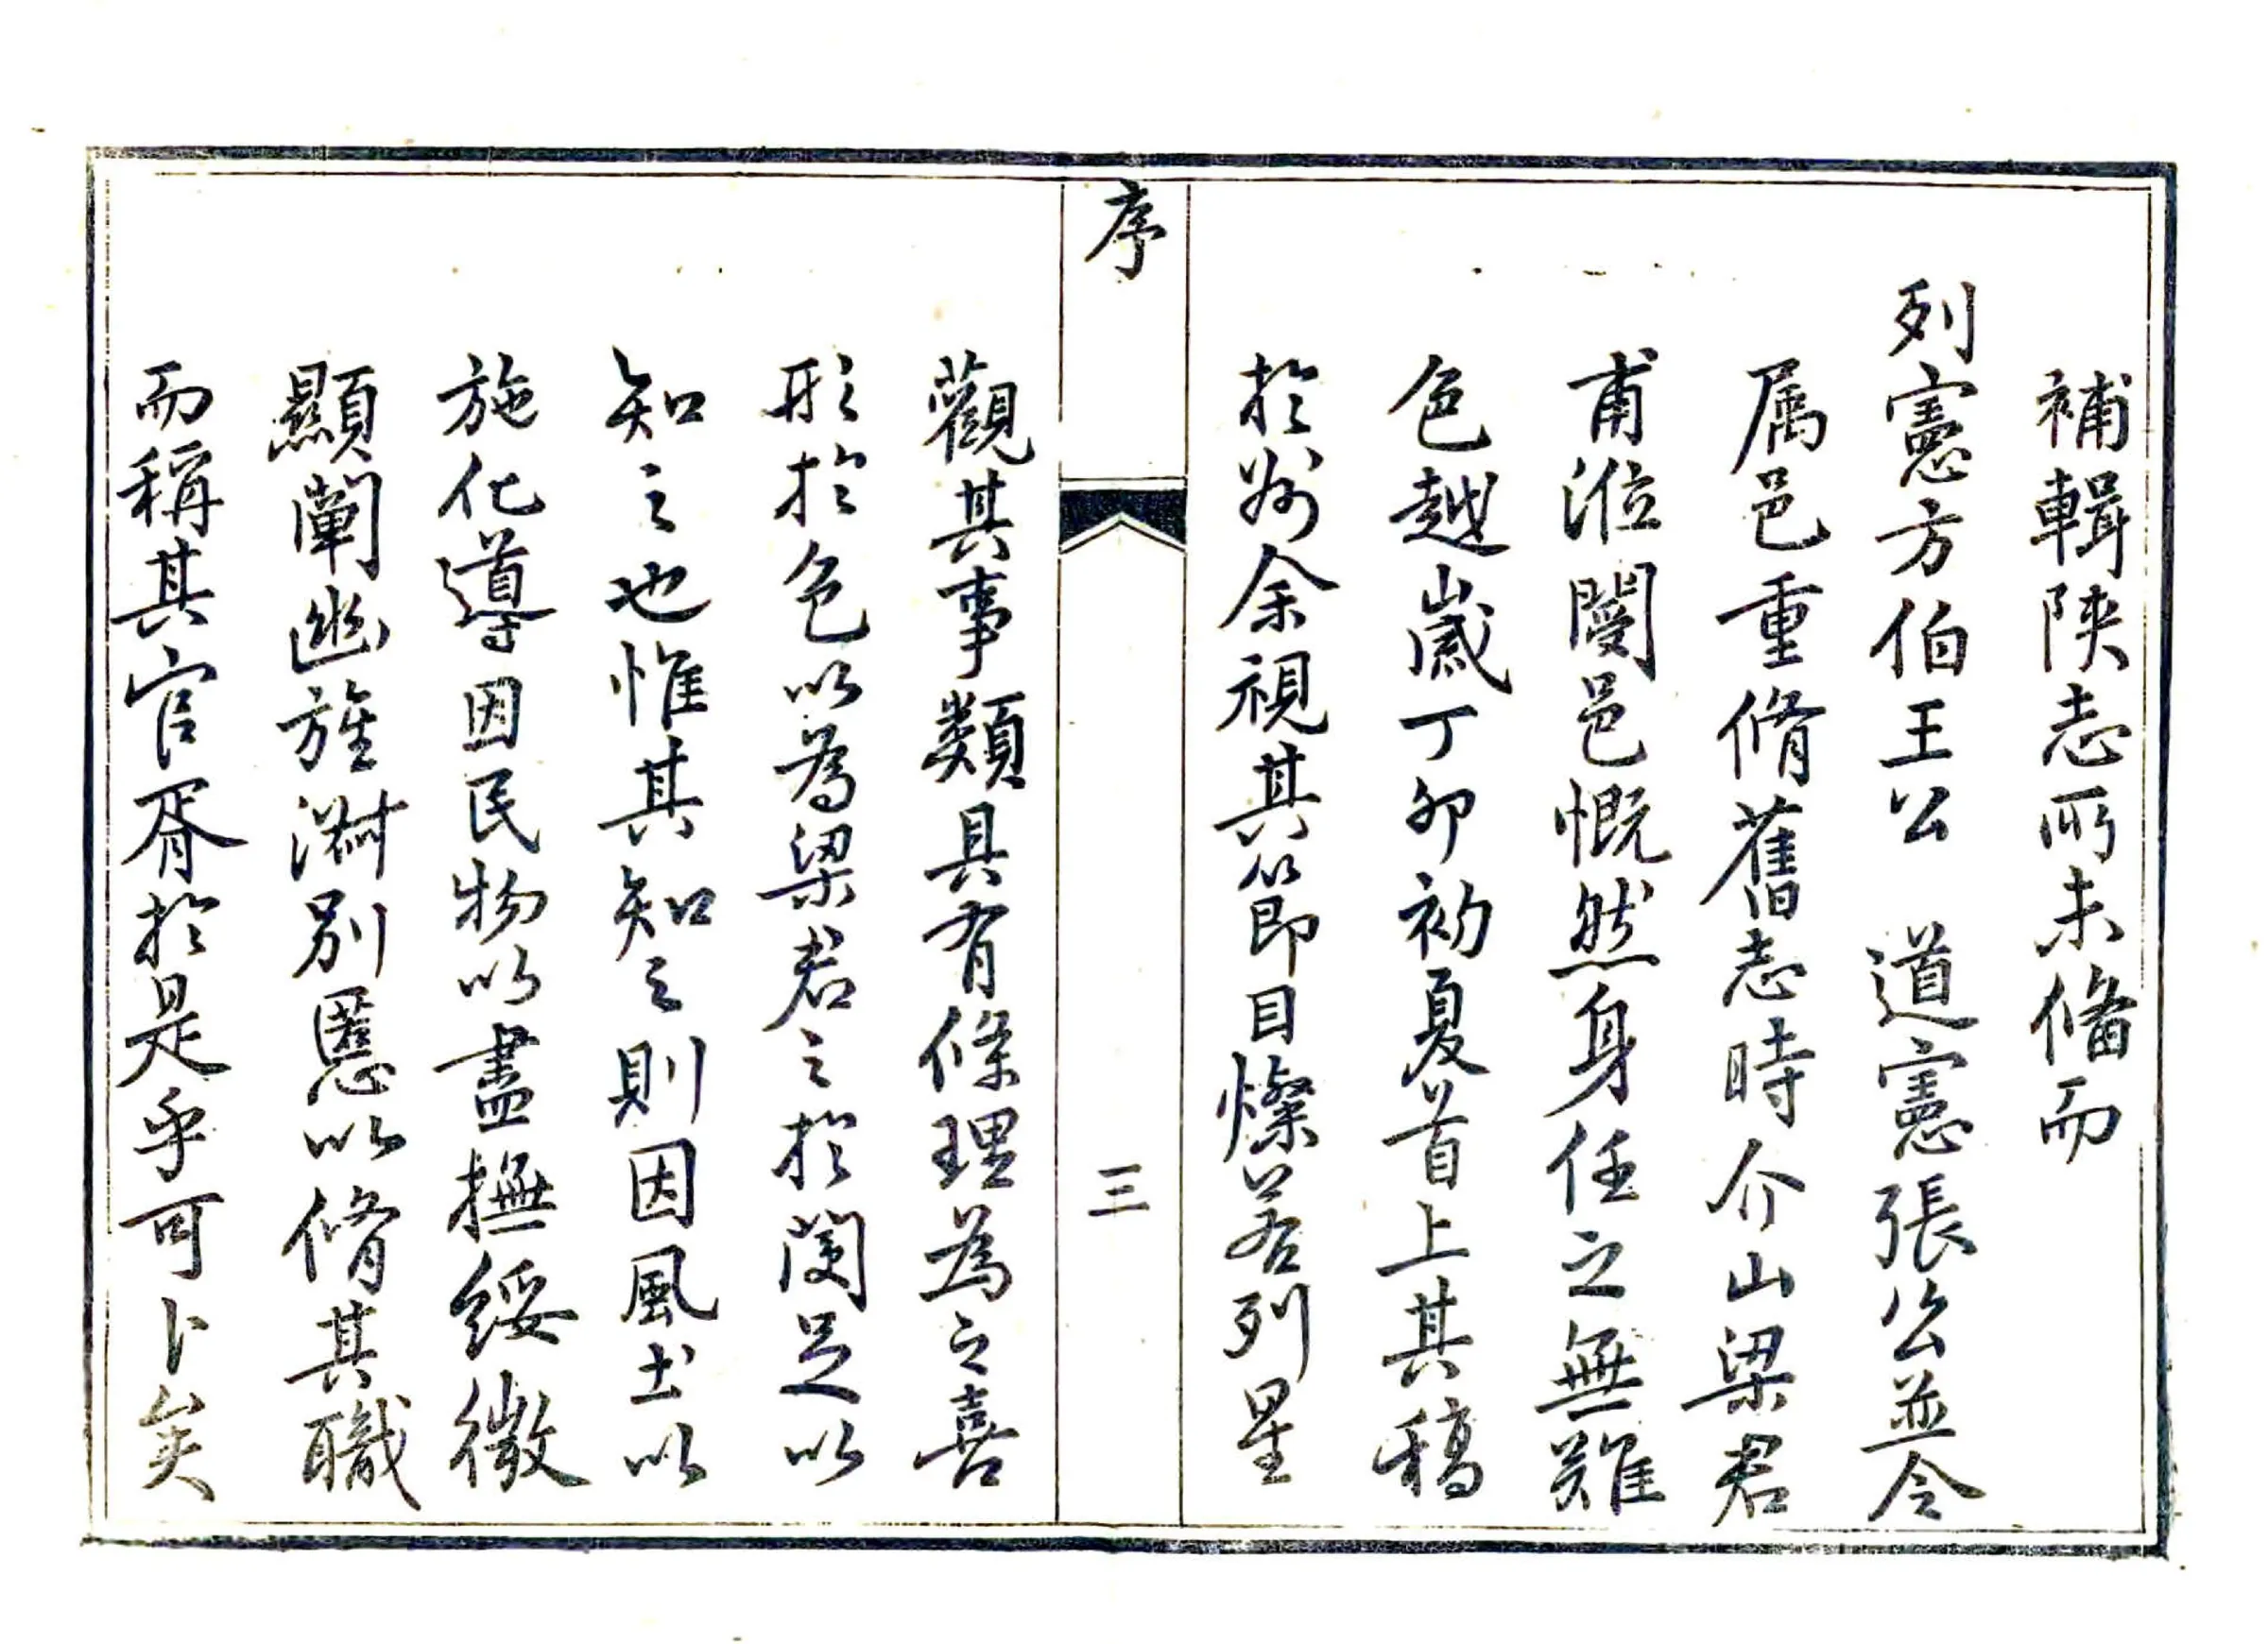 補輯陝志所未脩而
列憲方伯王公　道憲張公並令
属邑重脩舊志時介山梁君
甫涖閿邑慨然身任之無難
色越嵗丁卯初夏首上其稿
於州余視其節目燦若列星
序
三
觀其事類具有條理為之喜
形於色以為梁君之於閿足以
知之也惟其知之則因風土以
施化導因民物以盡撫綏微
顯闡幽旌淑別慝以脩其職
而稱其官胥於是乎可卜矣